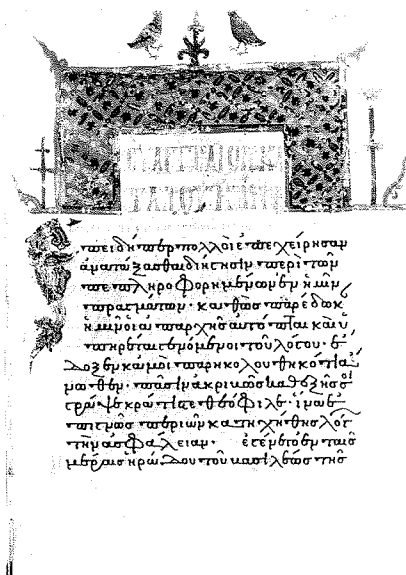 πειδήπερ πολλοὶ ἐπεχείρησαν
ἀνατάξασθαι διήγησιν περὶ τῶν
πεπληροφορημένων ἐν ἡμῖν
πραγμάτων· καθὼς παρέδωκ
ἡμῖν οἱ ἀπαρχῆς αὐτόπται καὶ ὑ
πηρέται γενόμενοι τοῦ λόγου· ἔ
δοξεν κἀμοὶ παρηκολουθηκότι ἄ
νωθεν πᾶσιν ἀκριβῶς καθεξῆς σοι
γράψαι κράτιστε θεόφιλε· ἵνα ἐ
πιγνῶς περὶ ὧν κατηχήθης λόγ
τὴν ἀσφάλειαν. ἐγένετο ἐν ταῖς
μέραις ἡρώδου τοῦ βασιλέως τῆς